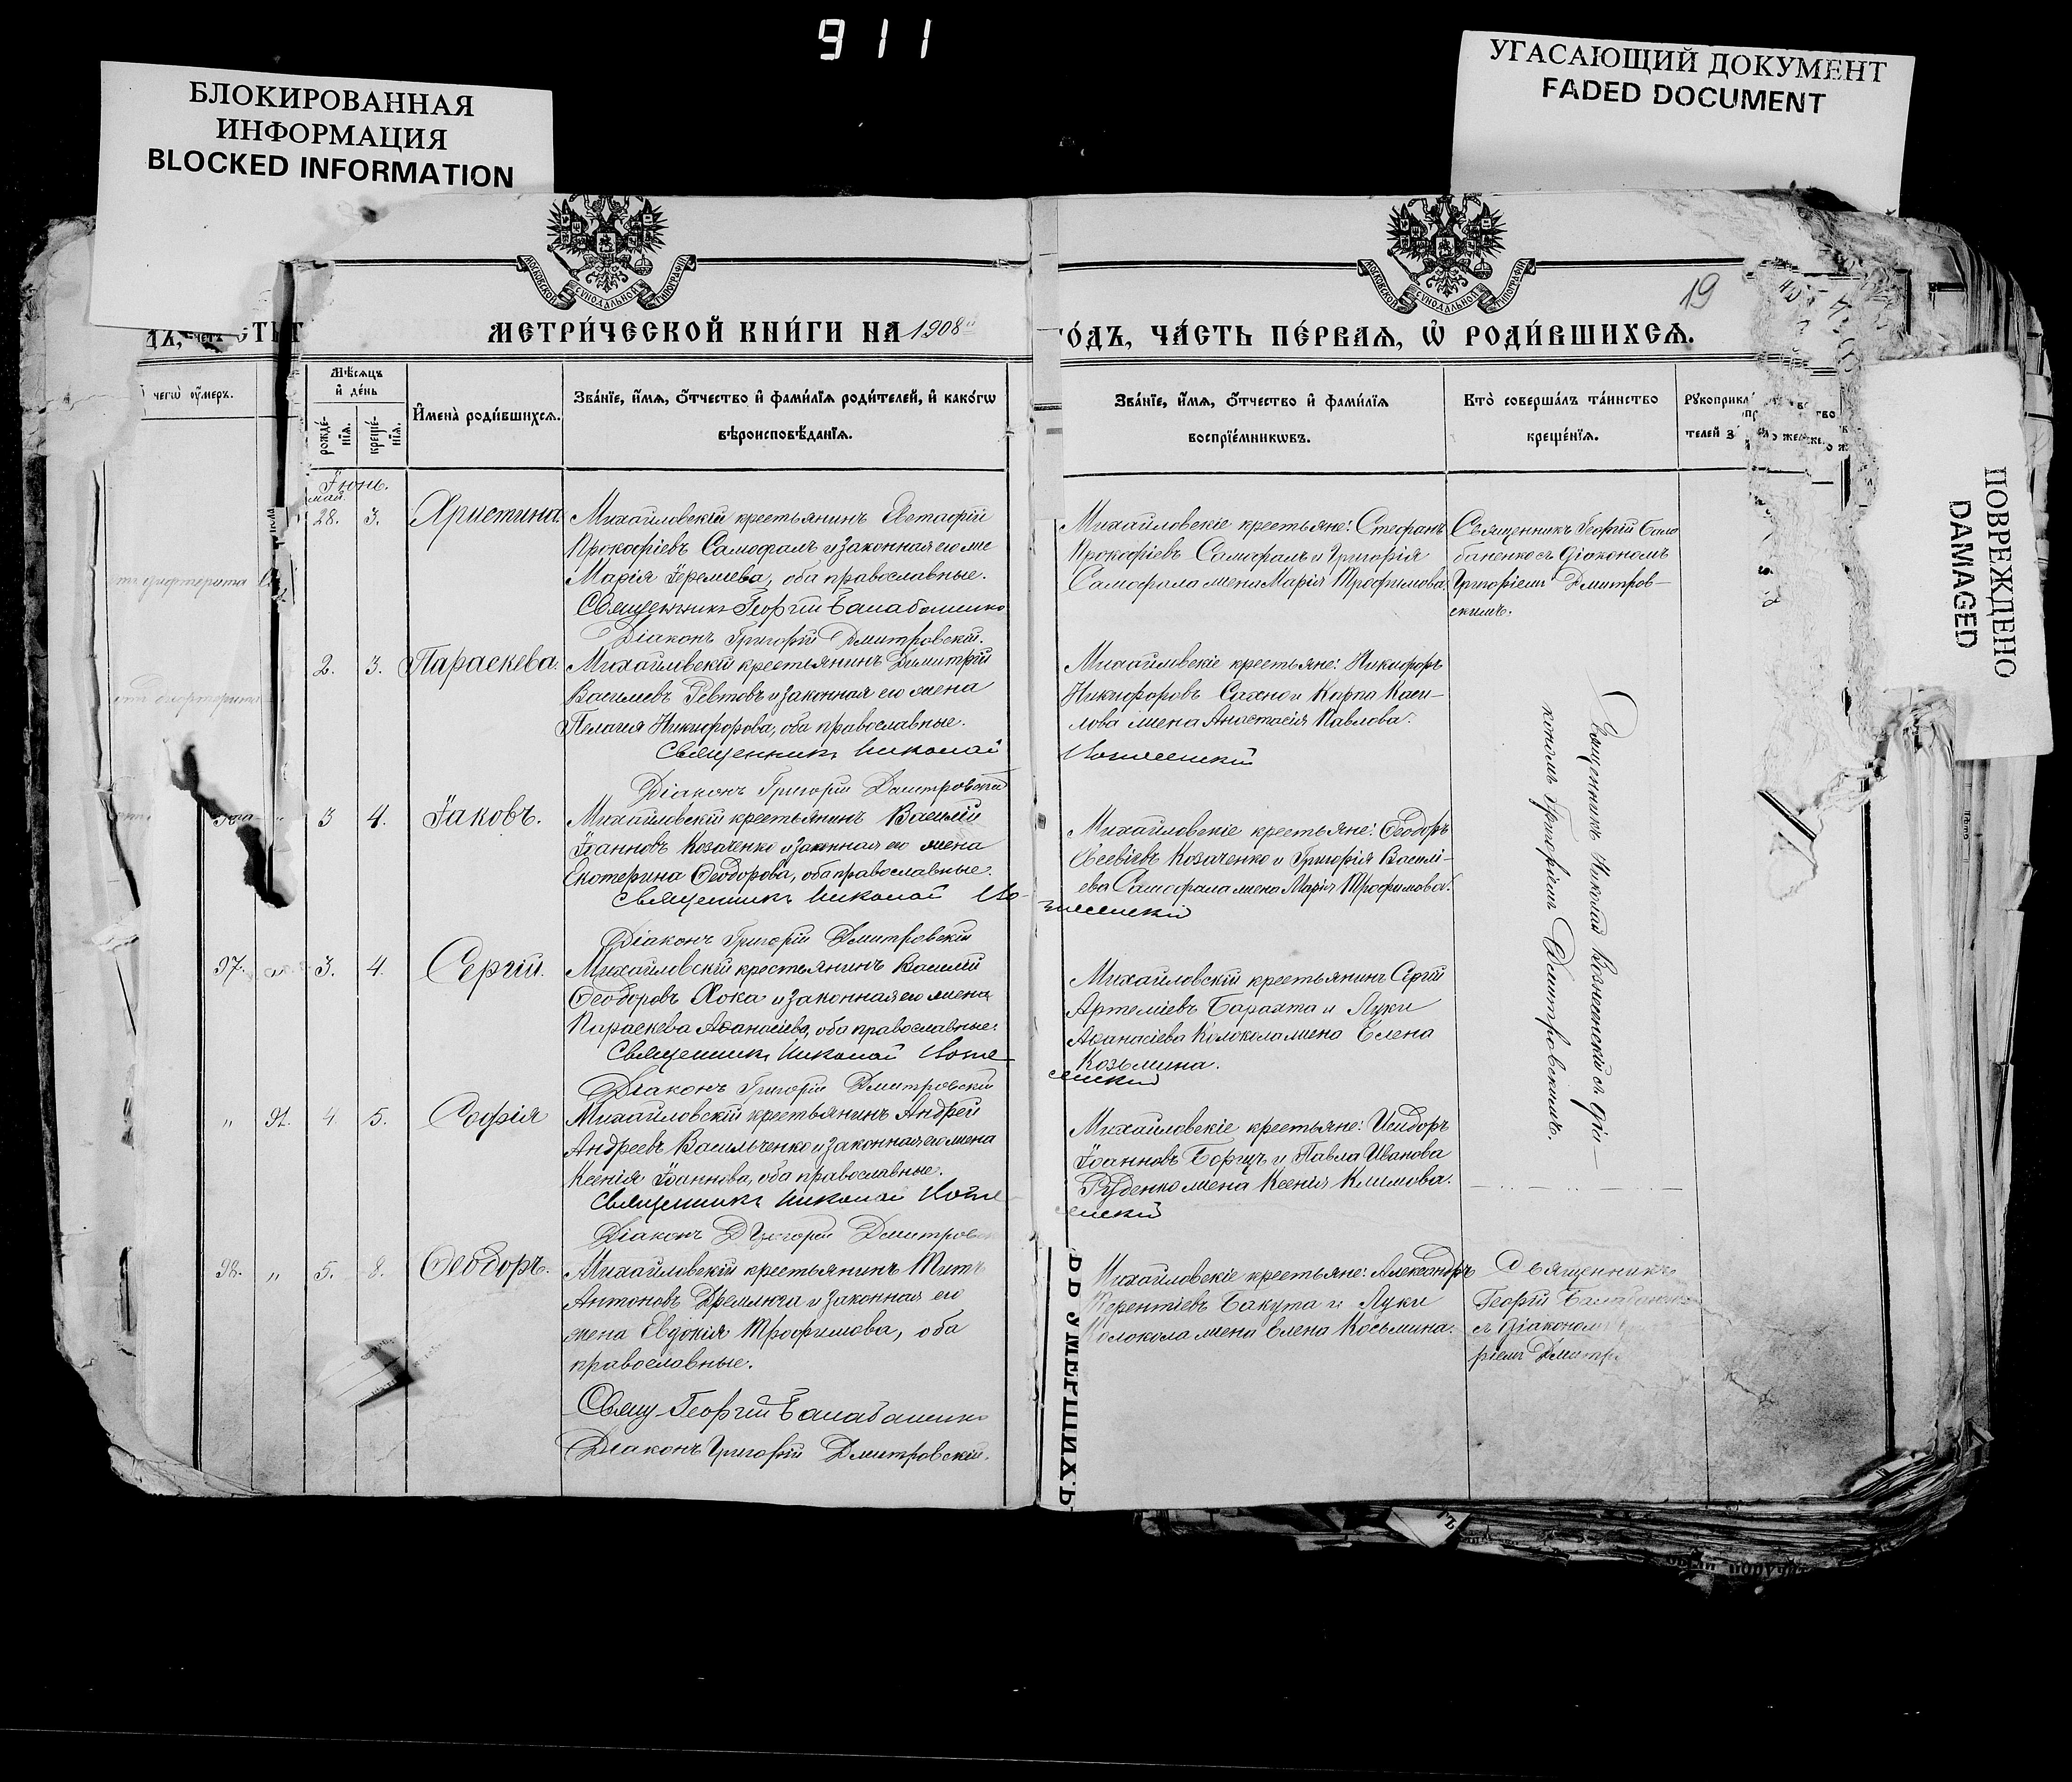 911
БЛОКИРОВАННАЯ
ИНФОРМАЦИЯ
BLOCKED INFORMATION
УГАСАЮЩИЙ ДОКУМЕНТ
FADED DOCUMENT
ПОВРЕЖДЕНО
DAMAGED
МОСКОВСКОЙ СѴНОДАЛЬНОЙ ТИПОГРАФІИ
МОСКОВСКОЙ СѴНОДАЛЬНОЙ ТИПОГРАФІИ
19
МЕТРИ́ЧЕСКОЙ КНИ́ГИ НА 1908
ГО́ДЪ, ЧА́СТЬ ПЕ́РВАѦ, Ѡ҆ РОДИ́ВШИХСѦ.
чегѡ ᲂу҆меръ.
Мѣ́сѧцъ
и҆ де́нь
рожде́-
нїѧ.
креще́-
нїѧ.
И҆мена̀ роди́вшихсѧ.
Зва́нїе, и҆́мѧ, ѻ҆́тчество и҆ фами́лїѧ роди́телей, и҆ како́гѡ
вѣроисповѣ́данїѧ.
Зва́нїе, и҆́мѧ, ѻ҆́тчество и҆ фами́лїѧ
воспрїе́мникѡвъ.
Кто̀ соверша́лъ та́инство
креще́нїѧ.
Рꙋкоприкл
телей
Іюнь.
май.
28. 3. Христина. Михайловскій крестьянинъ Евстафій
Прокофіевъ Самофалъ и законная его же
Марія Іереміева, оба православные.
Священникъ Георгій Балабаненко
Діаконъ Григорій Дмитровскій.
Михайловскіе крестьяне: Стефанъ
Прокофіевъ Самофалъ и Григорія
Самофала жена Марія Трофимова.
Священникъ Георгій Бала
баненко съ діакономъ
Григоріемъ Дмитров-
скимъ.
2. 3. Параскева. Михайловскій крестьянинъ Димитрій
Василіевъ и законная его жена
Пелагія Никифорова, оба православные.
Священникъ Николай
Вознесенскій
Діаконъ Григорій Дмитровскій
Михайловскіе крестьяне: Никифоръ
Никифоровъ Сахно и Карпа
жена Анастасія Павлова.
Священникъ Николай Вознесенскій съ діа-
кономъ Григоріемъ Дмитровскимъ.
3 4. Іаковъ. Михайловскій крестьянинъ Василій
Іоанновъ Козаченко и законная его жена
Екатерина Ѳеодорова, оба православные.
Священникъ Николай Во-
знесенскій
Діаконъ Григорій Дмитровскій
Михайловскіе крестьяне: Ѳеодоръ
Евсевіевъ Козаченко и Григорія Василі-
ева Самофала жена Марія Трофимова.
97. 3. 4. Сергій. Михайловскій крестьянинъ Василій
Ѳеодоровъ Хока и законная его жена
Параскева Аѳанасіева, оба православные.
Священникъ Николай Возне
сенскій
Діаконъ Григорій Дмитровскій
Михайловскій крестьянинъ Сергій
Артеміевъ Барахта и Луки
Аѳанасіева Колокола жена Елена
Козьмина.
" 91. 4. 5. Софія Михайловскій крестьянинъ Андрей
Андреевъ Васильченко и законная его жена
Ксенія Іоаннова, оба православные.
Священникъ Николай Возне
сенскій
Діаконъ Григорій Дмитровскій
Михайловскіе крестьяне: Исидоръ
Іоанновъ Борщъ и Павла Иванова
Руденко жена Ксенія Климова.
98. " 5. 8. Ѳеодоръ. Михайловскій крестьянинъ Титъ
Антоновъ Дремлюга и законная его
жена Евдокія Трофимова, оба
православные.
Свящ. Георгій Балабаненко
Діаконъ Григорій Дмитровскій.
Михайловскіе крестьяне: Александръ
Терентіевъ Бакута и Луки
Колокола жена Елена Косьмина.
Священникъ
Георгій Балабаненко
съ діакономъ
ріемъ Дмитр
УМЕРШИХЪ